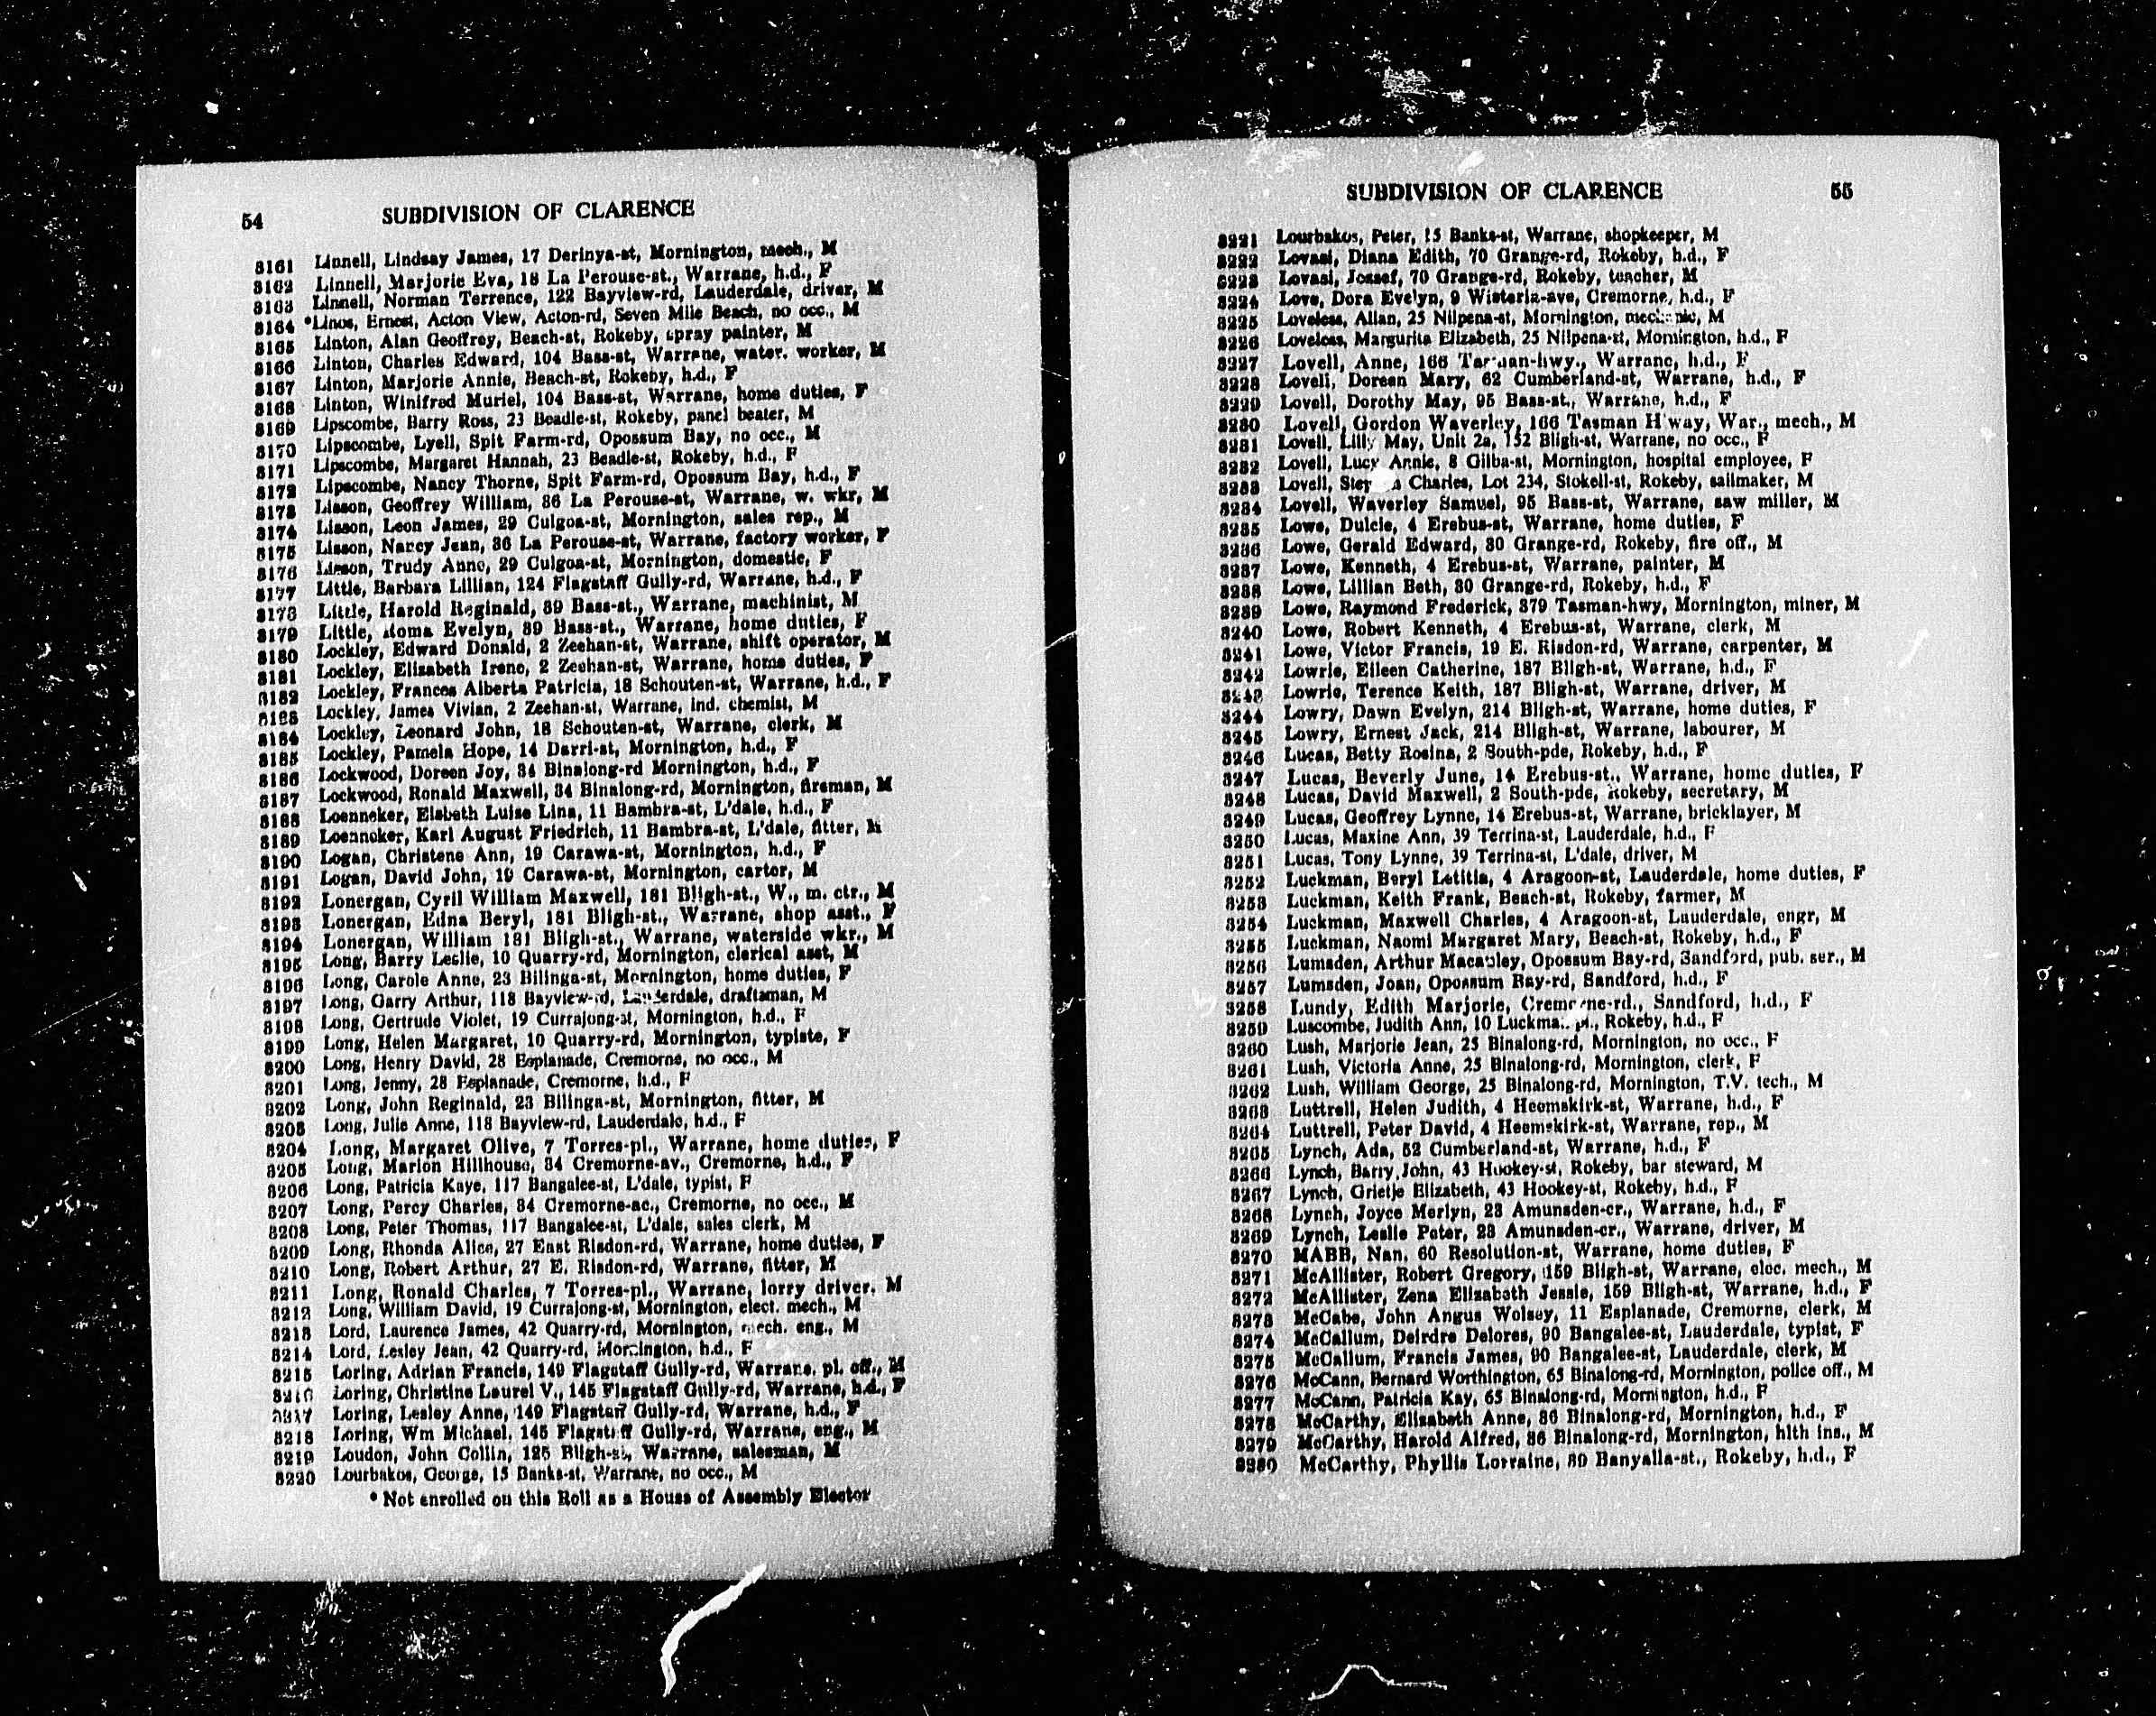 54 SUBDIVISION OF CLARENCE
8161 Linnell, Lindsay James, 17 Derinya-st, Mornington, mech., M
8162 Linnell, Marjorie Eva, 18 La Perouse-st., Warrane, h.d., F
8163 Linnell, Norman Terrence, 122 Bayview-rd, Lauderdale, driver, M
8164 *Linos, Ernest, Acton View, Acton-rd, Seven Mile Beach, no occ., M
8165 Linton, Alan Geoffrey, Beach-st, Rokeby, spray painter, M
8166 Linton, Charles Edward, 104 Bass-st, Warrane, water. worker, M
8167 Linton, Marjorie Annie, Beach-st, Rokeby, h.d., F
8168 Linton, Winifred Muriel, 104 Bass-st, Warrane, home duties, F
8169 Lipscombe, Barry Ross, 23 Beadle-st, Rokeby, panel beater, M
8170 Lipscombe, Lyell, Spit Farm-rd, Opossum Bay, no occ., M
8171 Lipscombe, Margaret Hannah, 23 Beadle-st, Rokeby, h.d., F
8172 Lipscombe, Nancy Thorne, Spit Farm-rd, Opossum Bay, h.d., F
8173 Lisson, Geoffrey William, 36 La Perouse-st, Warrane, w. wkr, M
8174 Lisson, Leon James, 29 Culgoa-st, Mornington, sales rep., M
8175 Lisson, Nancy Jean, 36 La Perouse-st, Warrane, factory worker, F
8176 Lisson, Trudy Anne, 29 Culgoa-st, Mornington, domestic, F
8177 Little, Barbara Lillian, 124 Flagstaff Gully-rd, Warrane, h.d., F
8178 Little, Harold Reginald, 89 Bass-st., Warrane, machinist, M
8179 Little, Roma Evelyn, 89 Bass-st., Warrane, home duties, F
8180 Lockley, Edward Donald, 2 Zeehan-st, Warrane, shift operator, M
8181 Lockley, Elizabeth Irene, 2 Zeehan-st, Warrane, home duties, F
8182 Lockley, Frances Alberta Patricia, 18 Schouten-st, Warrane, h.d., F
8183 Lockley, James Vivian, 2 Zeehan-st, Warrane, ind. chemist, M
8184 Lockley, Leonard John, 18 Schouten-st, Warrane, clerk, M
8185 Lockley, Pamela Hope, 14 Darri-st, Mornington, h.d., F
8186 Lockwood, Doreen Joy, 34 Binalong-rd Mornington, h.d., F
8187 Lockwood, Ronald Maxwell, 34 Binalong-rd, Mornington, fireman, M
8188 Loenneker, Elsbeth Luise Lina, 11 Bambra-st, L'dale, h.d., F
8189 Loenneker, Karl August Friedrich, 11 Bambra-st, L'dale, fitter, M
8190 Logan, Christene Ann, 19 Carawa-st, Mornington, h.d., F
8191 Logan, David John, 19 Carawa-st, Mornington, carter, M
8192 Lonergan, Cyril William Maxwell, 181 Bligh-st., W., m. ctr., M
8193 Lonergan, Edna Beryl, 181 Bligh-st., Warrane, shop asst., F
8194 Lonergan, William 181 Bligh-st., Warrane, waterside wkr., M
8195 Long, Barry Leslie, 10 Quarry-rd, Mornington, clerical asst, M
8196 Long, Carole Anne, 23 Bilinga-st, Mornington, home duties, F
8197 Long, Garry Arthur, 118 Bayview-rd, Lauderdale, draftsman, M
8198 Long, Gertrude Violet, 19 Currajong-st, Mornington, h.d., F
8199 Long, Helen Margaret, 10 Quarry-rd, Mornington, typiste, F
8200 Long, Henry David, 28 Esplanade, Cremorne, no occ., M
8201 Long, Jenny, 28 Esplanade, Cremorne, h.d., F
8202 Long, John Reginald, 23 Bilinga-st, Mornington, fitter, M
8203 Long, Julie Anne, 118 Bayview-rd, Lauderdale, h.d., F
8204 Long, Margaret Olive, 7 Torres-pl., Warrane, home duties, F
8205 Long, Marion Hillhouse, 34 Cremorne-av., Cremorne, h.d., F
8206 Long, Patricia Kaye, 117 Bangalee-st, L'dale, typist, F
8207 Long, Percy Charles, 34 Cremorne-ac., Cremorne, no occ., M
8208 Long, Peter Thomas, 117 Bangalee-st, L'dale, sales clerk, M
8209 Long, Rhonda Alice, 27 East Risdon-rd, Warrane, home duties, F
8210 Long, Robert Arthur, 27 E. Risdon-rd, Warrane, fitter, M
8211 Long, Ronald Charles, 7 Torres-pl., Warrane, lorry driver, M
8212 Long, William David, 19 Currajong-st, Mornington, elect. mech., M
8213 Lord, Laurence James, 42 Quarry-rd, Mornington, mech. eng., M
8214 Lord, Lesley Jean, 42 Quarry-rd, Mornington, h.d., F
8215 Loring, Adrian Francis, 149 Flagstaff Gully-rd, Warrane, pl. off., M
8216 Loring, Christine Laurel V., 145 Flagstaff Gully-rd, Warrane, h.d., F
8217 Loring, Lesley Anne, 149 Flagstaff Gully-rd, Warrane, h.d., F
8218 Loring, Wm Michael, 145 Flagstaff Gully-rd, Warrane, eng., M
8219 Loudon, John Collin, 125 Bligh-st, Warrane, salesman, M
8220 Lourbakos, George, 15 Banks-st, Warrane, no occ., M
* Not enrolled on this Roll as a House of Assembly Elector
SUBDIVISION OF CLARENCE 55
8221 Lourbakos, Peter, 15 Banks-st, Warrane, shopkeeper, M
8222 Lovasi, Diana Edith, 70 Grange-rd, Rokeby, h.d., F
8223 Lovasi, Jozsef, 70 Grange-rd, Rokeby, teacher, M
8224 Love, Dora Evelyn, 9 Wisteria-ave, Cremorne, h.d., F
8225 Loveless, Allan, 25 Nilpena-st, Mornington, mechanic, M
8226 Loveless, Margurita Elizabeth, 25 Nilpena-st, Mornington, h.d., F
8227 Lovell, Anne, 166 Tasman-hwy., Warrane, h.d., F
8228 Lovell, Doreen Mary, 62 Cumberland-st, Warrane, h.d., F
8229 Lovell, Dorothy May, 95 Bass-st., Warrane, h.d., F
8230 Lovell, Gordon Waverley, 166 Tasman H'way, War., mech., M
8231 Lovell, Lilly May, Unit 2a, 152 Bligh-st, Warrane, no occ., F
8232 Lovell, Lucy Annie, 8 Gilba-st, Mornington, hospital employee, F
8233 Lovell, Charles, Lot 234, Stokell-st, Rokeby, sailmaker, M
8234 Lovell, Waverley Samuel, 95 Bass-st, Warrane, saw miller, M
8235 Lowe, Dulcie, 4 Erebus-st, Warrane, home duties, F
8236 Lowe, Gerald Edward, 30 Grange-rd, Rokeby, fire off., M
8237 Lowe, Kenneth, 4 Erebus-st, Warrane, painter, M
8238 Lowe, Lillian Beth, 30 Grange-rd, Rokeby, h.d., F
8239 Lowe, Raymond Frederick, 379 Tasman-hwy, Mornington, miner, M
8240 Lowe, Robert Kenneth, 4 Erebus-st, Warrane, clerk, M
8241 Lowe, Victor Francis, 19 E. Risdon-rd, Warrane, carpenter, M
8242 Lowrie, Eileen Catherine, 187 Bligh-st, Warrane, h.d., F
8243 Lowrie, Terence Keith, 187 Bligh-st, Warrane, driver, M
8244 Lowry, Dawn Evelyn, 214 Bligh-st, Warrane, home duties, F
8245 Lowry, Ernest Jack, 214 Bligh-st, Warrane, labourer, M
8246 Lucas, Betty Rosina, 2 South-pde, Rokeby, h.d., F
8247 Lucas, Beverly June, 14 Erebus-st., Warrane, home duties, F
8248 Lucas, David Maxwell, 2 South-pde, Rokeby, secretary, M
8249 Lucas, Geoffrey Lynne, 14 Erebus-st, Warrane, bricklayer, M
8250 Lucas, Maxine Ann, 39 Terrina-st, Lauderdale, h.d., F
8251 Lucas, Tony Lynne, 39 Terrina-st, L'dale, driver, M
8252 Luckman, Beryl Letitia, 4 Aragoon-st, Lauderdale, home duties, F
8253 Luckman, Keith Frank, Beach-st, Rokeby, farmer, M
8254 Luckman, Maxwell Charles, 4 Aragoon-st, Lauderdale, engr, M
8255 Luckman, Naomi Margaret Mary, Beach-st, Rokeby, h.d., F
8256 Lumsden, Arthur Macauley, Opossum Bay-rd, Sandford, pub. ser., M
8257 Lumsden, Joan, Opossum Bay-rd, Sandford, h.d., F
8258 Lundy, Edith Marjorie, Cremorne-rd., Sandford, h.d., F
8259 Luscombe, Judith Ann, 10 Luckman pl., Rokeby, h.d., F
8260 Lush, Marjorie Jean, 25 Binalong-rd, Mornington, no occ., F
8261 Lush, Victoria Anne, 25 Binalong-rd, Mornington, clerk, F
8262 Lush, William George, 25 Binalong-rd, Mornington, T.V. tech., M
8263 Luttrell, Helen Judith, 4 Heemskirk-st, Warrane, h.d., F
8264 Luttrell, Peter David, 4 Heemskirk-st, Warrane, rep., M
8265 Lynch, Ada, 52 Cumberland-st, Warrane, h.d., F
8266 Lynch, Barry John, 43 Hookey-st, Rokeby, bar steward, M
8267 Lynch, Grietje Elizabeth, 43 Hookey-st, Rokeby, h.d., F
8268 Lynch, Joyce Merlyn, 23 Amunsden-cr., Warrane, h.d., F
8269 Lynch, Leslie Peter, 23 Amunsden-cr., Warrane, driver, M
8270 MABB, Nan, 60 Resolution-st, Warrane, home duties, F
8271 McAllister, Robert Gregory, 159 Bligh-st, Warrane, elec. mech., M
8272 McAllister, Zena Elizabeth Jessie, 159 Bligh-st, Warrane, h.d., F
8273 McCabe, John Angus Wolsey, 11 Esplanade, Cremorne, clerk, M
8274 McCallum, Deirdre Delores, 90 Bangalee-st, Lauderdale, typist, F
8275 McCallum, Francis James, 90 Bangalee-st, Lauderdale, clerk, M
8276 McCann, Bernard Worthington, 65 Binalong-rd, Mornington, police off., M
8277 McCann, Patricia Kay, 65 Binalong-rd, Mornington, h.d., F
8278 McCarthy, Elizabeth Anne, 86 Binalong-rd, Mornington, h.d., F
8279 McCarthy, Harold Alfred, 86 Binalong-rd, Mornington, hlth ins., M
8280 McCarthy, Phyllis Lorraine, 89 Banyalla-st., Rokeby, h.d., F